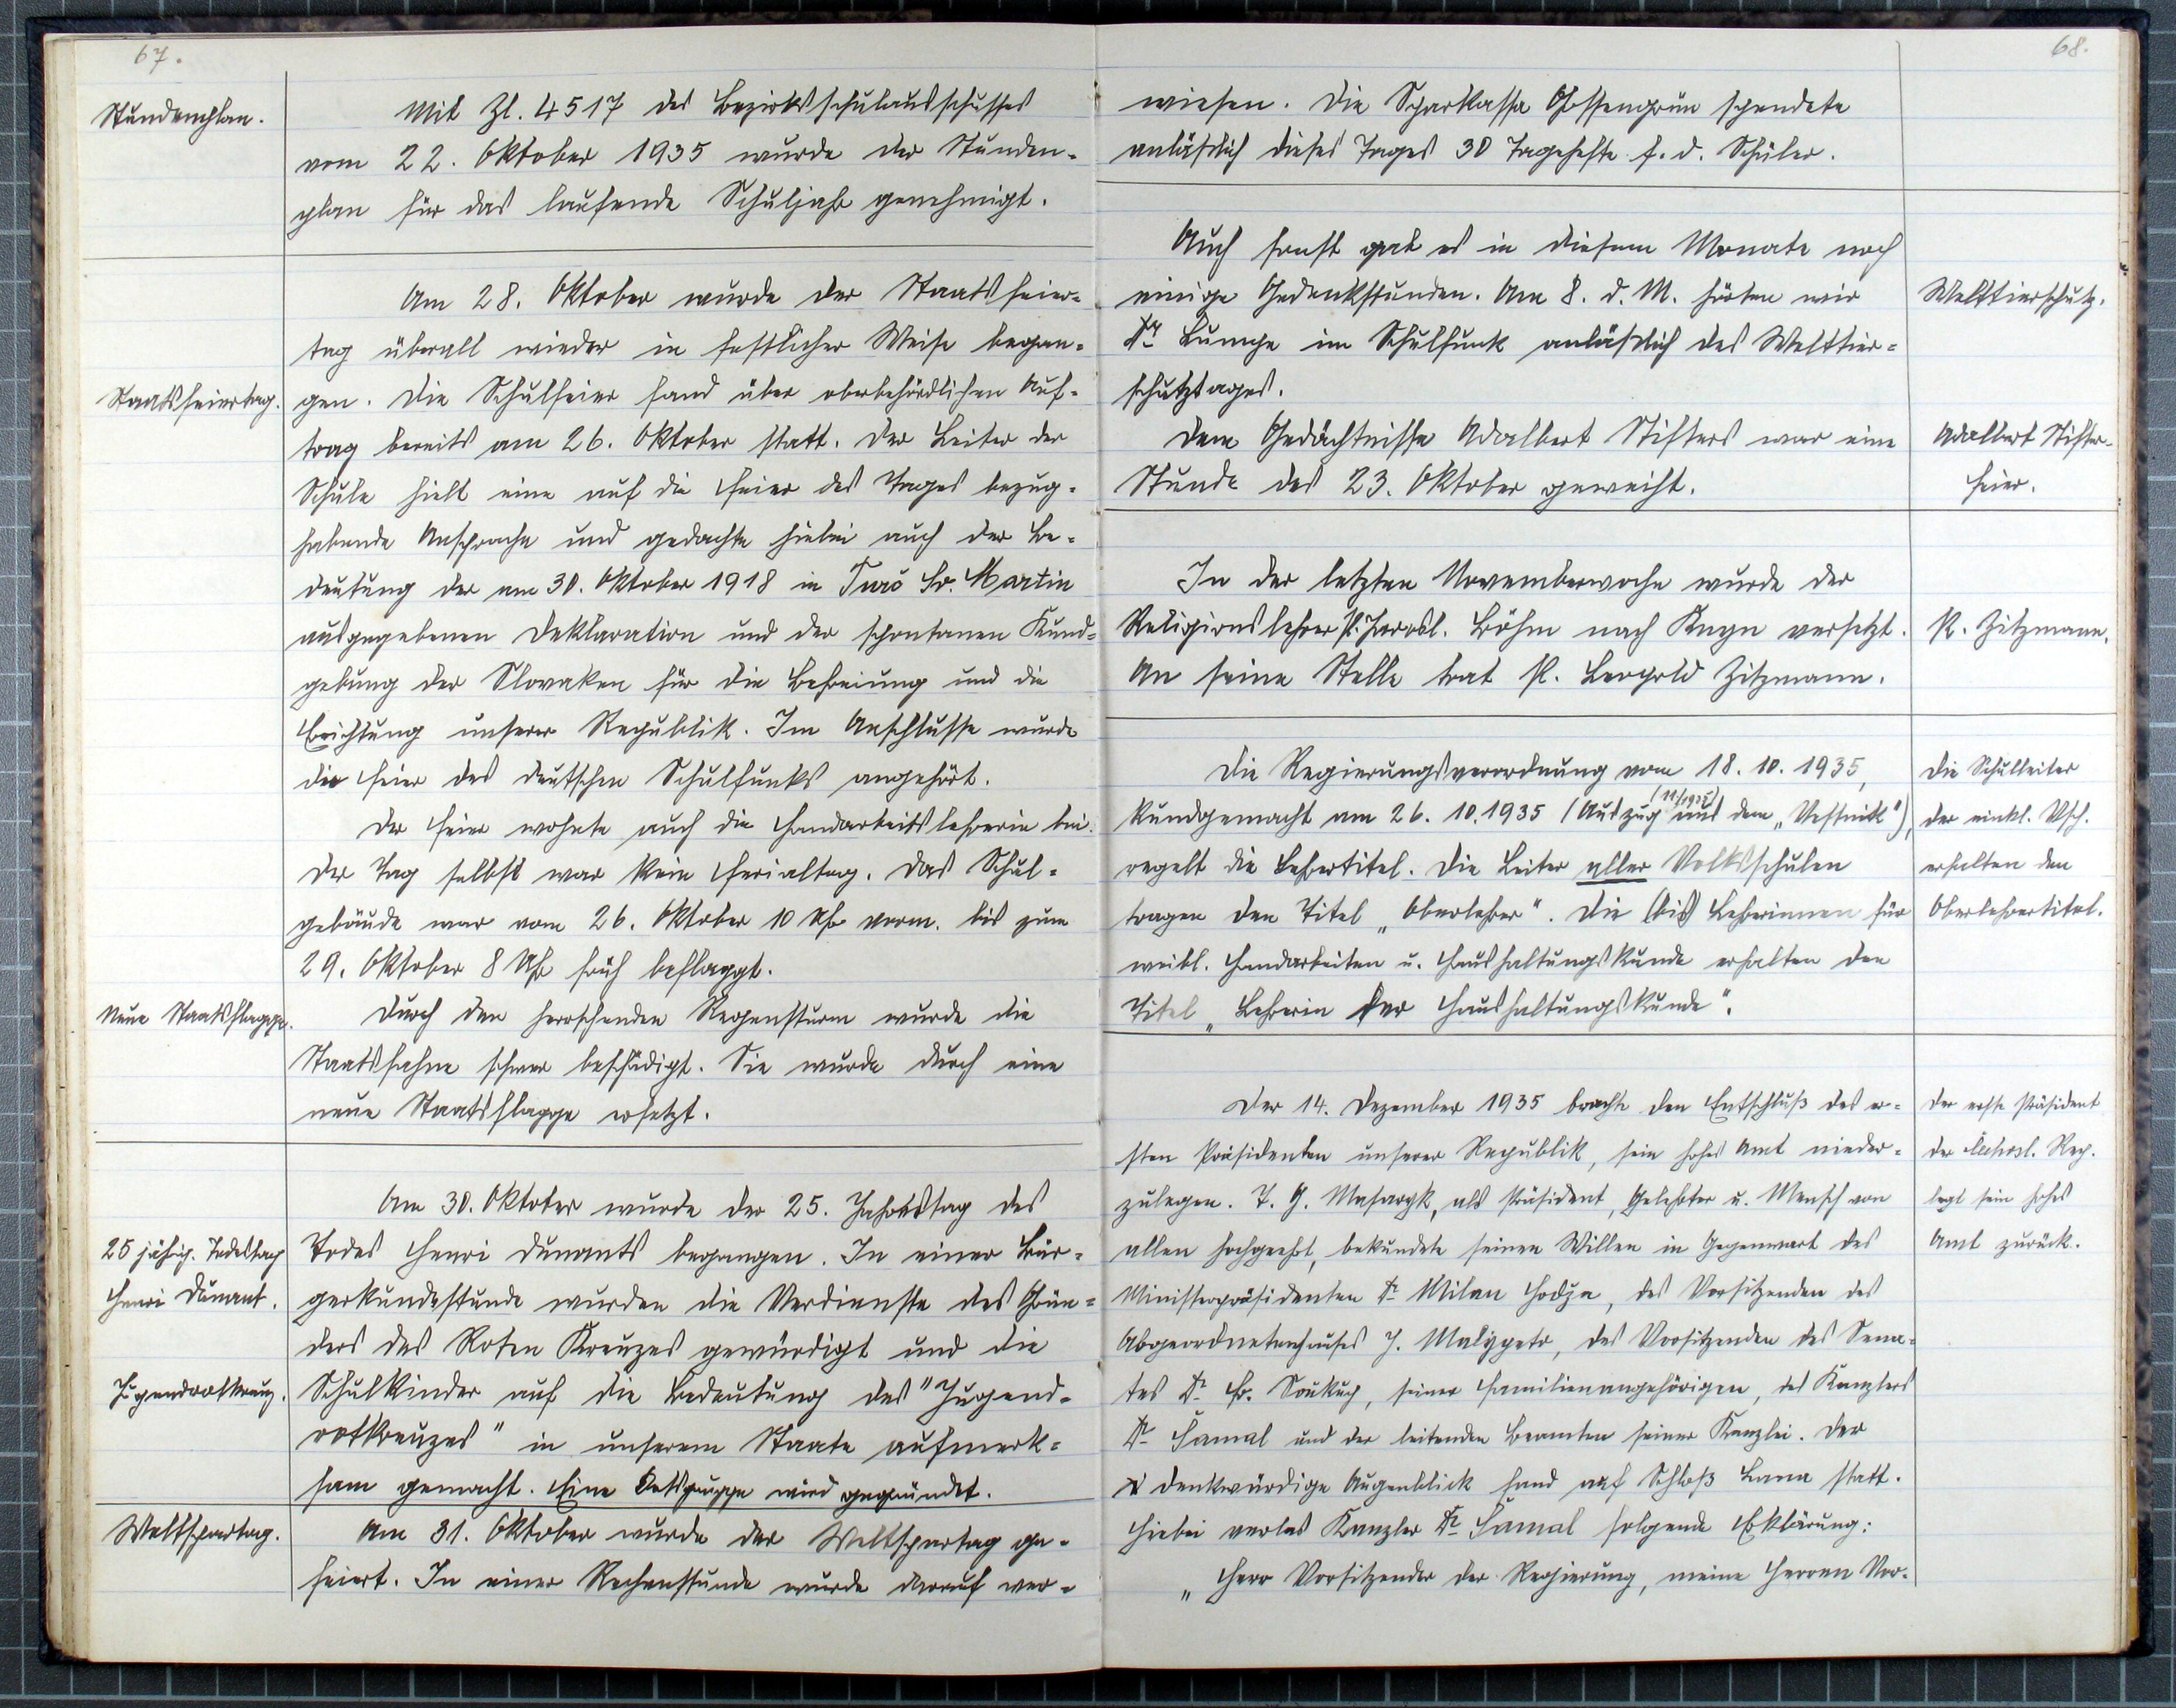 67.
Stundenplan.
Mit Zl. 4517 des Bezirksschulausschusses
vom 22. Oktober 1935 wurde der Stunden-
plan für das laufende Schuljahr genehmigt.
Am 28. Oktober wurde der Staatsfeier-
tag überall wieder in festlicher Weise began-
Staatsfeiertag.
gen. Die Schulfeier fand über oberbehördlichen Auf-
trag bereits am 26. Oktober statt. Der Leiter der
Schule hielt eine auf die Feier des Tages bezug-
habende Ansprache und gedachte hiebei auch der Be-
deutung der am 30. Oktober 1918 in Turč Sv. Martin
ausgegebenen Deklaration und der spontanen Kund-
gebung der Slovaken für die Befreiung und die
Errichtung unserer Republik. Im Anschlusse wurde
die Feier des deutschen Schulfunks angehört.
Der Feier wohnte auch die Handarbeitslehrerin bei.
Der Tag selbst war kein Ferialtag. Das Schul-
gebäude war vom 26. Oktober 10 Uhr vorm. bis zum
29. Oktober 8 Uhr früh beflaggt.
Neue Staatsflagge.
Durch den herrschenden Regensturm wurde die
Staatsfahne schwer beschädigt. Sie wurde durch eine
neue Staatsflagge ersetzt.
Am 30. Oktober wurde der 25. Jahrestag des
25 jährig. Todestag
Todes Henri Dunants begangen. In einer Bür-
Henri Dunant.
gerkundestunde wurden die Verdienste des Grün-
ders des Roten Kreuzes gewürdigt und die
Jugendrotkreuz.
Schulkinder auf die Bedeutung des "Jugend-
rotkreuzes" in unserem Staate aufmerk-
sam gemacht. Eine Ortsgruppe wird gegründet.
Weltspartag.
Am 31. Oktober wurde der Weltspartag ge-
feiert. In einer Rechenstunde wurde darauf ver-
68.
wiesen. Die Sparkassa Gossengrün spendete
anläßlich dieses Tages 30 Tagehefte f. d. Schüler.
Auch sonst gab es in diesem Monate noch
einige Gedenkstunden. Am 8. d. M. hörten wir
Welttierschutz.
Dr Lumpe im Schulfunk anläßlich des Welttier-
schutztages.
Dem Gedächtnisse Adalbert Stifters war eine
Adalbert Stifter-
Stunde des 23. Oktober geweiht.
feier.
In der letzten Novemberwoche wurde der
Religionslehrer P. Jarosl. Böhm nach Kuyn versetzt.
P. Zitzmann.
An seine Stelle trat P. Leopold Zitzmann.
Die Regierungsverordnung vom 18. 10. 1935,
Die Schulleiter
(11/1935)
kundgemacht am 26. 10. 1935 (Auszug aus dem "Vestnik"),
der einkl. Vsch.
regelt die Lehrertitel. Die Leiter aller Volksschulen
erhalten den
tragen den Titel "Oberlehrer". Die (bis) Lehrerinnen für
Oberlehrertitel.
weibl. Handarbeiten u. Haushaltungskunde erhalten den
Titel "Lehrerin der Haushaltungskunde".
Der 14. Dezember 1935 brachte den Entschluß des er-
Der erste Präsident
sten Präsidenten unserer Republik, sein hohes Amt nieder-
der čechosl. Rep.
zulegen. T. G. Masaryk, als Präsident, Gelehrter u. Mensch von
legt sein hohes
allen hochgeehrt, bekundete seinen Willen in Gegenwart des
Amt zurück.
Ministerpräsidenten Dr Milan Hodža, des Vorsitzenden des
Abgeordnetenhauses J. Malypetr, des Vorsitzenden des Sena-
tes Dr Fr. Soukup, seiner Familienangehörigen, des Kanzlers
Dr Šamal und der leitenden Beamten seiner Kanzlei. Der
denkwürdige Augenblick fand auf Schloß Lana statt.
Hiebei verlas Kanzler Dr Šamal folgende Erklärung:
"Herr Vorsitzender der Regierung, meine Herren Vor-